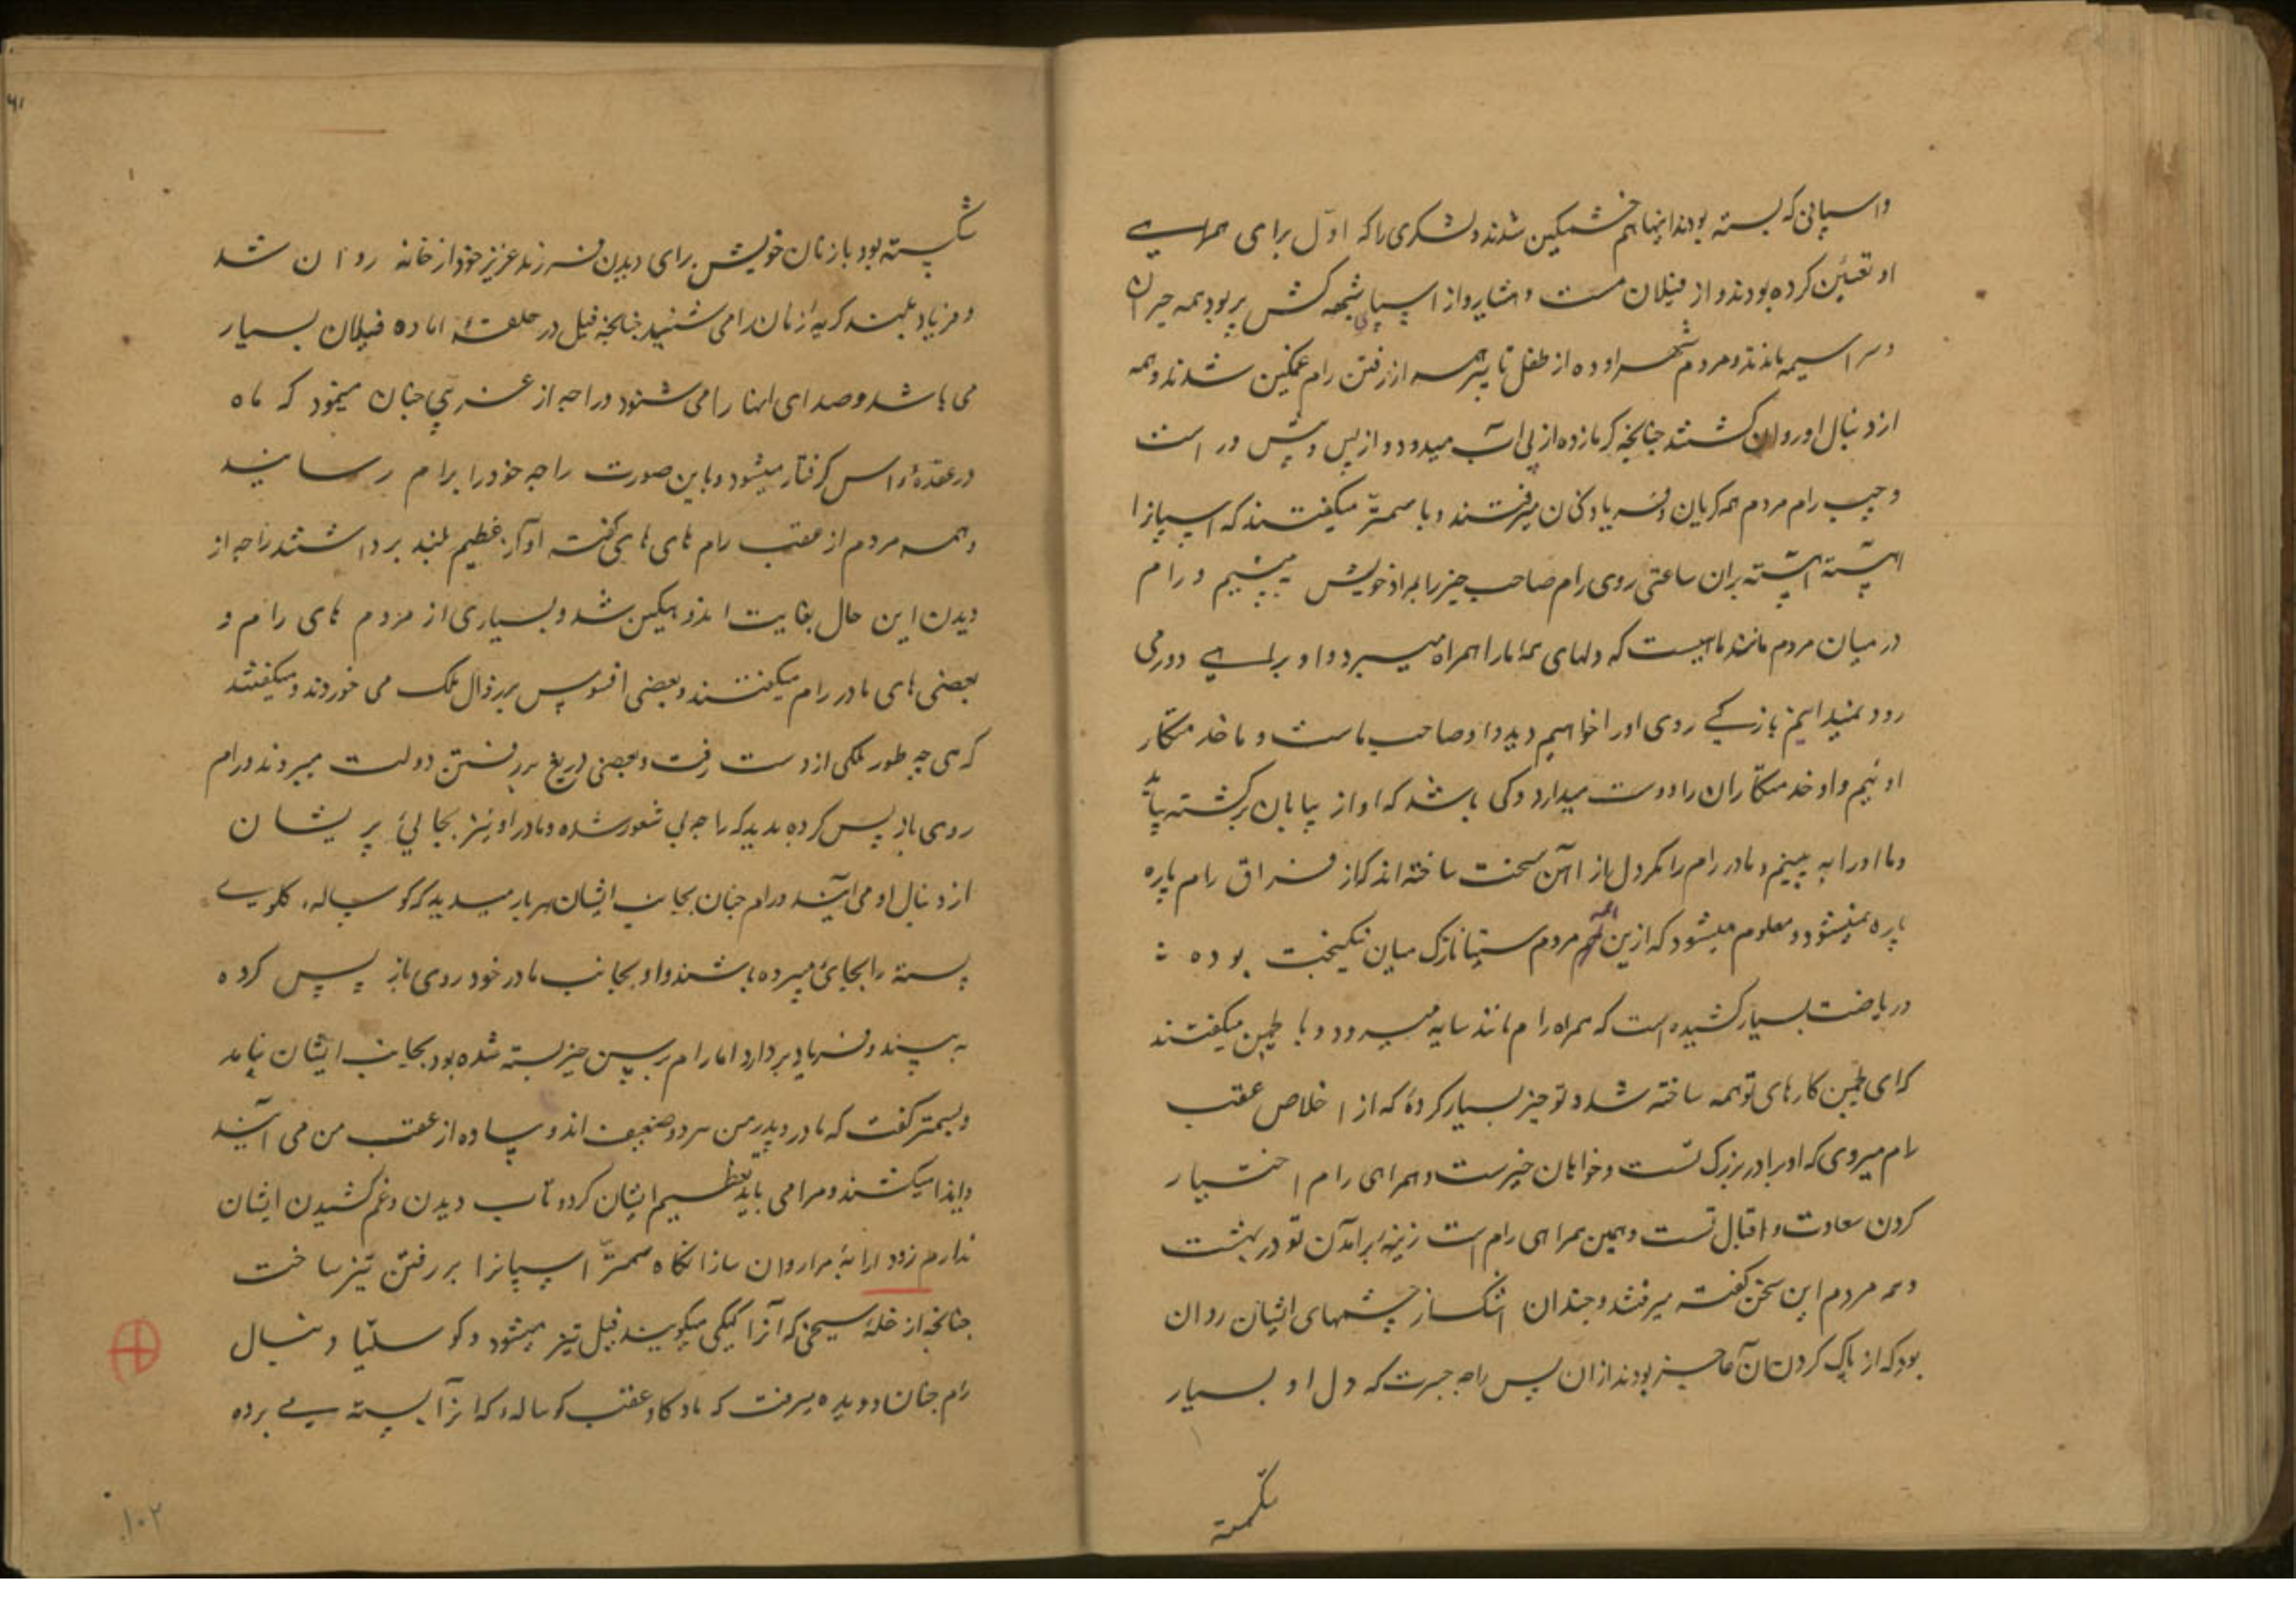 واسپانی که بسته بودند اینها هم خشمگین شدند و لشکری را که اول برای همراهی
او تعیین کرده بودند و از فیلان مست و از اسپان شیهه کش پر بود همه حیران
و سراسیمه ماندند و مردم شهر اوده از طفل تا پیر همه از رفتن رام غمگین شدند و همه
از دنبال او روان گشتند چنانچه گرمازده از پی آب میدود و از پس و پیش و راست
و چپ رام مردم همه گریان و فریاد کنان میرفتند و با سمتر میگفتند که اسپانرا
آهسته آهسته بران ساعتی روی رام صاحب خیر را بمراد خویش ببینیم و رام
در میان مردم مانند ماهیست که دلهای همه ما را همراه میبرد و او برای دور می
رود نمیدانیم باز کی روی او را خواهیم دید و او صاحب ماست و ما خدمتگار
او ئیم و او خدمتگاران را دوست میدارد و کی باشد که او از بیابان برگشته بیاید
و ما او را به بینیم و مادر رام را مگر دل از آهن سخت ساخته اند که از فراق رام پاره
پاره نمیشود و معلوم میشود که ازین همه مردم سیتا نازک میان نیکبخت بوده
و ریاضت بسیار کشیده است که همراه رام مانند سایه میرود و با لچمن میگفتند
که ای لچمن کارهای تو همه ساخته شد و تو خیر بسیار کرده که از اخلاص عقب
رام میروی که او برادر بزرگ تست و خواهان خیرست و همراهی رام اختیار
کردن سعادت و اقبال تست و همین همراهی رام است زینه برآمدن تو در بهشت
و همه مردم این سخن گفته میرفتند و چندان اشک از چشمهای ایشان روان
بود که از پاک کردن آن عاجز بودند از آن پس راجه جسرت که دل او بسیار
شکسته
شکسته بود با زنان خویش برای دیدن فرزند عزیز خود از خانه روان شد
و فریاد بلند گریهٔ زنان را می شنید چنانچه فیل در حلقهٔ ماده فیلان بسیار
می باشد و صدای آنها را می شنود و راجه از غریبی چنان مینمود که ماه
در عقدهٔ راس گرفتار میشود و باین صورت راجه خود را برام رسانید
و همه مردم از عقب رام های های گفته آواز عظیم بلند برداشتند راجه از
دیدن این حال بغایت اندوهگین شد و بسیاری از مردم های رام و
بعضی های مادر رام میگفتند و بعضی افسوس بر زوال ملک می خوردند و میگفتند
که هی چه طور ملکی از دست رفت و بعضی دریغ بر رفتن دولت میبردند و رام
روی باز پس کرده بدید که راجه بی شعور شده و مادر او نیز بحالی پریشان
از دنبال او می آیند و رام چنان بجانب ایشان هر بار میدید که گوساله گلوی
بسته را بجای میبرده باشند و او بجانب مادر خود روی باز پس کرده
به بیند و فریاد بردارد اما رام بر سین خیر بسته شده بود بجانب ایشان نیامد
و بسمتر گفت که مادر و پدر من هر دو ضعیف اند و پیاده از عقب من می آیند
و ایذا میکشند و مرا می باید تعظیم ایشان کرد و تاب دیدن و غم کشیدن ایشان
ندارم زود ارابهٔ مرا روان ساز آنگاه سمتر اسپانرا بر رفتن تیز ساخت
چنانچه از خلهٔ سیخی که آنرا کجک میگویند فیل تیز میشود و کوسلیا دنبال
رام چنان دویده میرفت که ماده گاو عقب گوساله که آنرا بسته می برده
۱۰۲